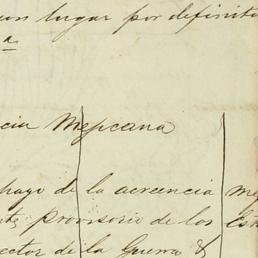 un lugar por definiti
a
cia Mejicana
pago de la acreencia me
te provisorio de los Est
ector de la Guerra &